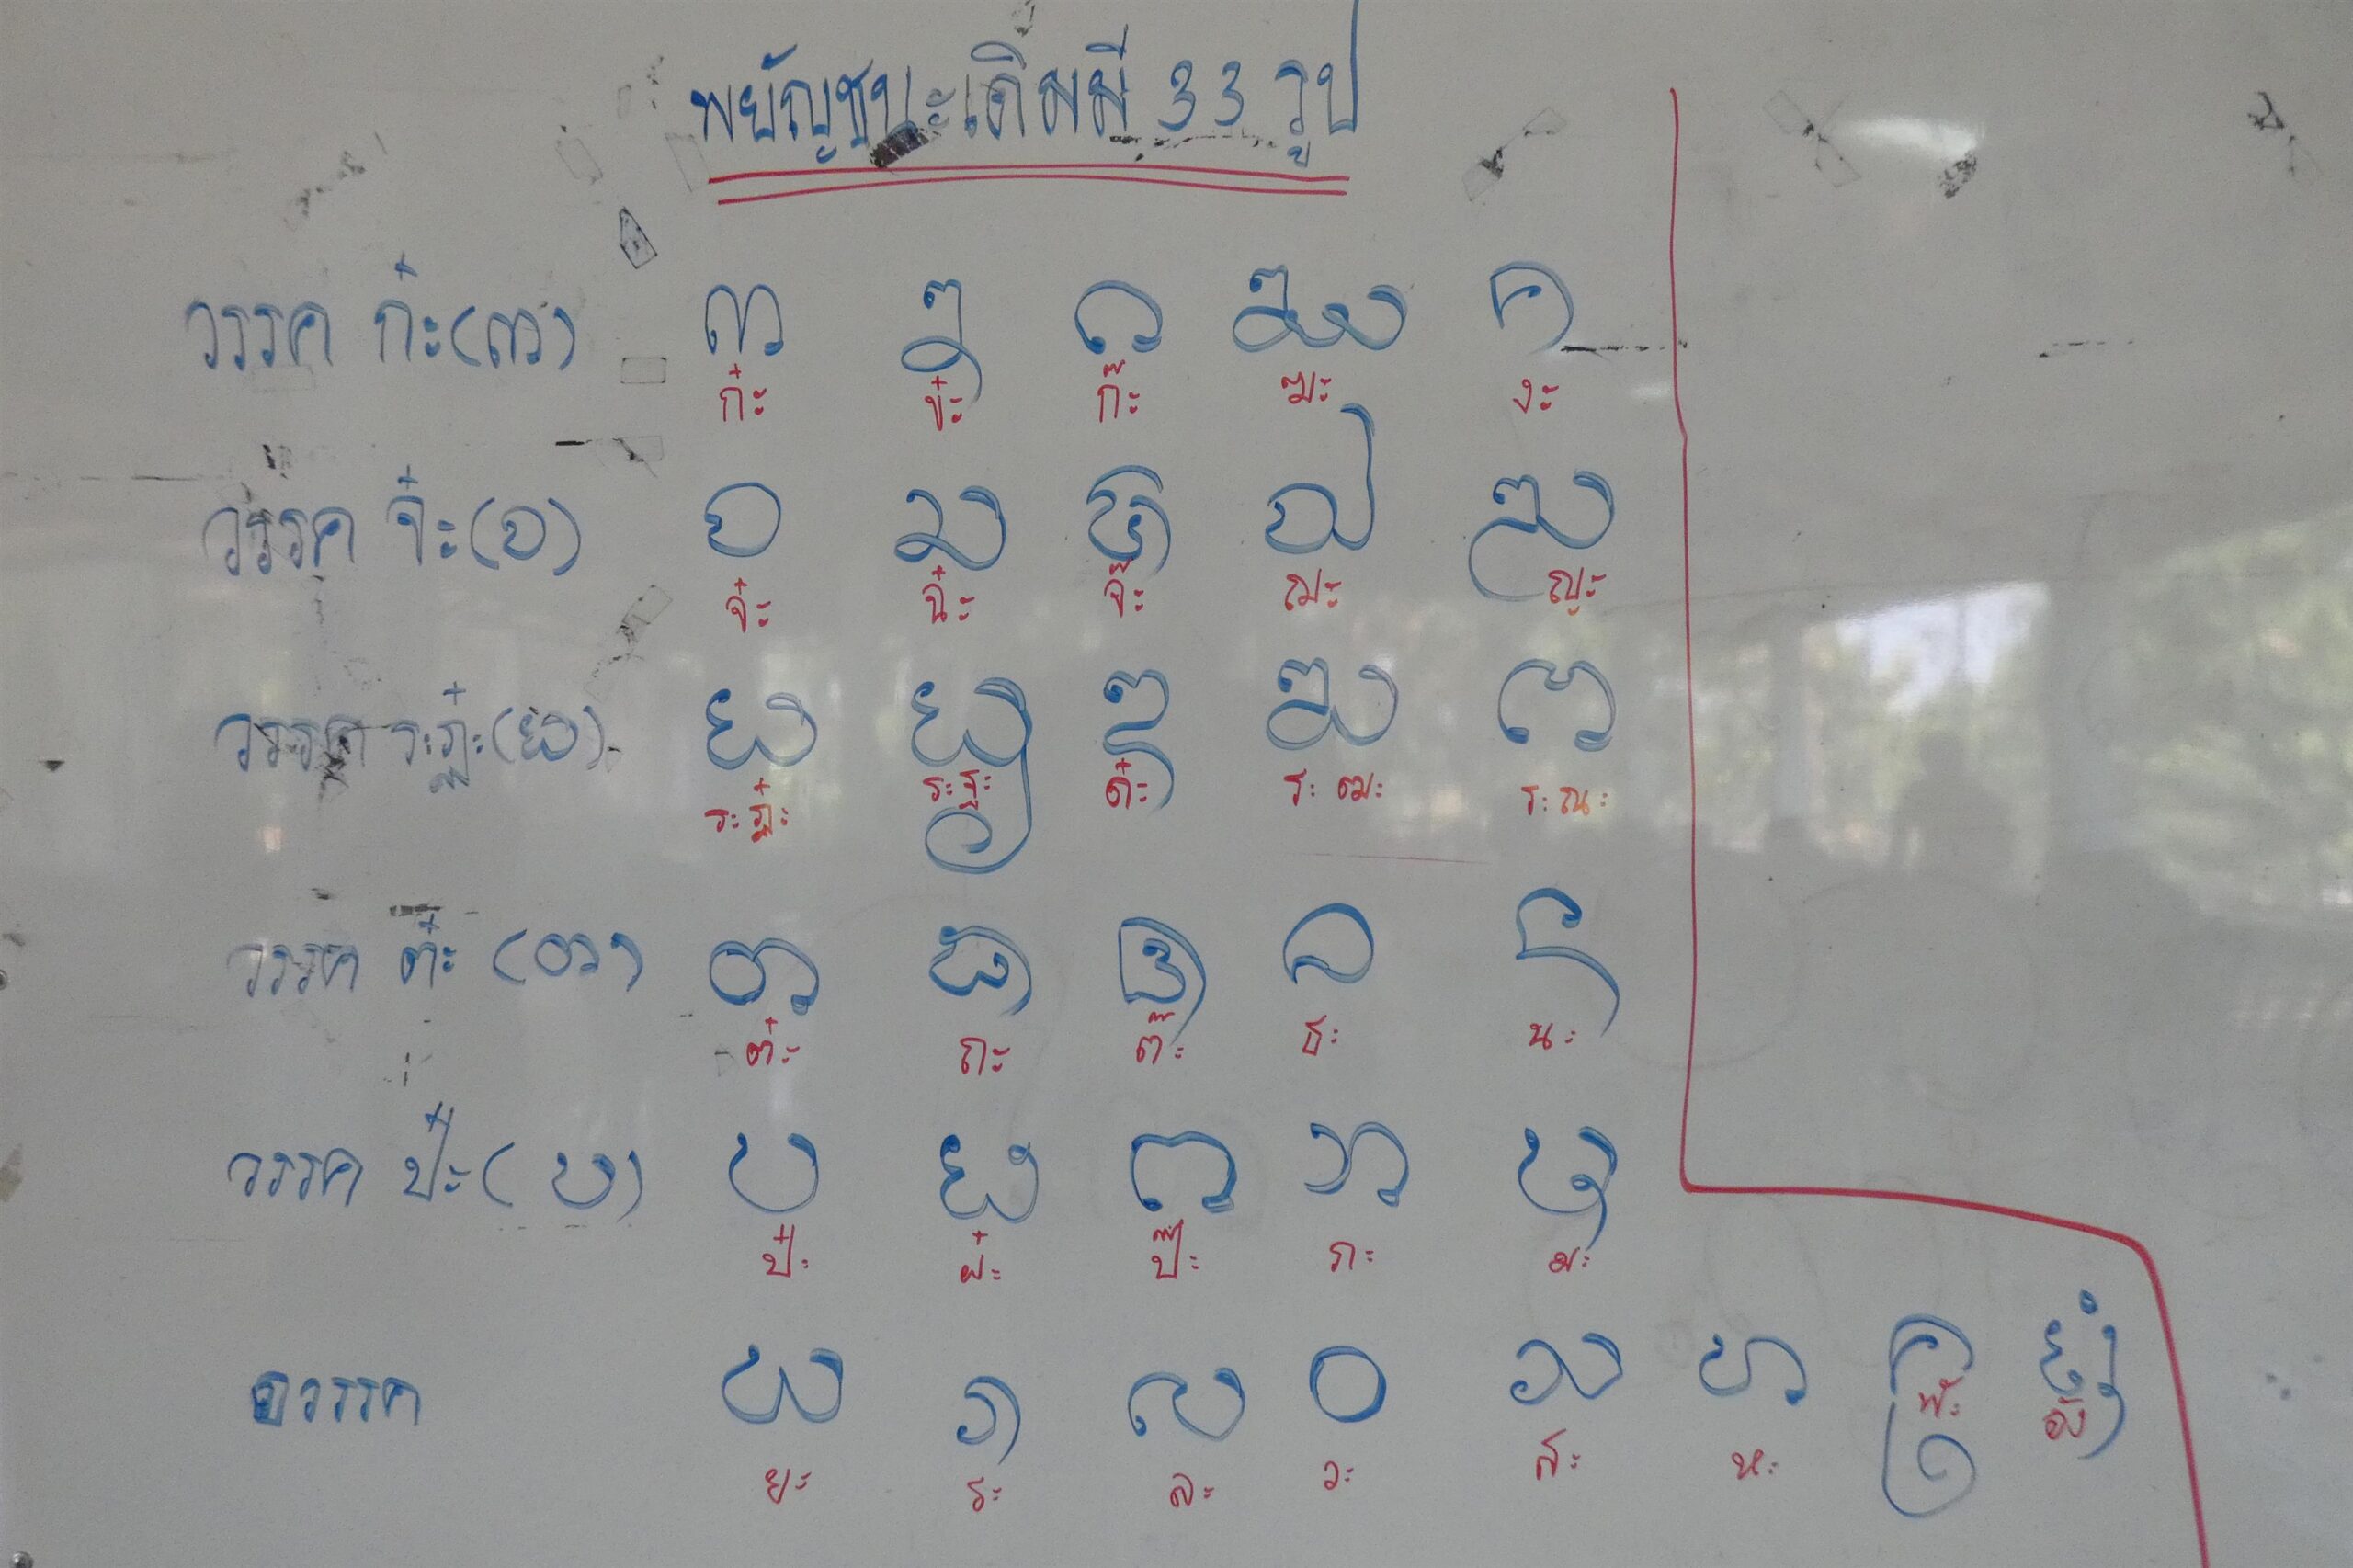 พยัญชนะเดิมมี 33 รูป
วรรค ก๋ะ(ᨠ) ᨠ ᨡ ᨣ ᨥ ᨦ
ก๋ะ ข๋ะ ก๊ะ ฆะ งะ
วรรค จ๋ะ(ᨧ) ᨧ ᨨ ᨩ ᨫ ᨬ
จ๋ะ ฉ๋ะ จ๊ะ ฌะ ญะ
วรรค ระฏ๋ะ(ᨭ) ᨭ ᨮ ᨯ ᨰ ᨱ
ระฏ๋ะ ระฐะ ด๋ะ ระฒะ ระณะ
วรรค ต๋ะ (ᨲ) ᨲ ᨳ ᨴ ᨵ ᨶ
ต๋ะ ถะ ต๊ะ ธะ นะ
วรรค ป๋ะ(ᨷ) ᨷ ᨹ ᨻ ᨽ ᨾ
ป๋ะ ผ๋ะ ป๊ะ ภะ มะ
อวรรค ᨿ ᩁ ᩃ ᩅ ᩈ ᩉ ᩊ ᩋᩴ
ยะ ระ ละ วะ สะ หะ ฬะ อัง